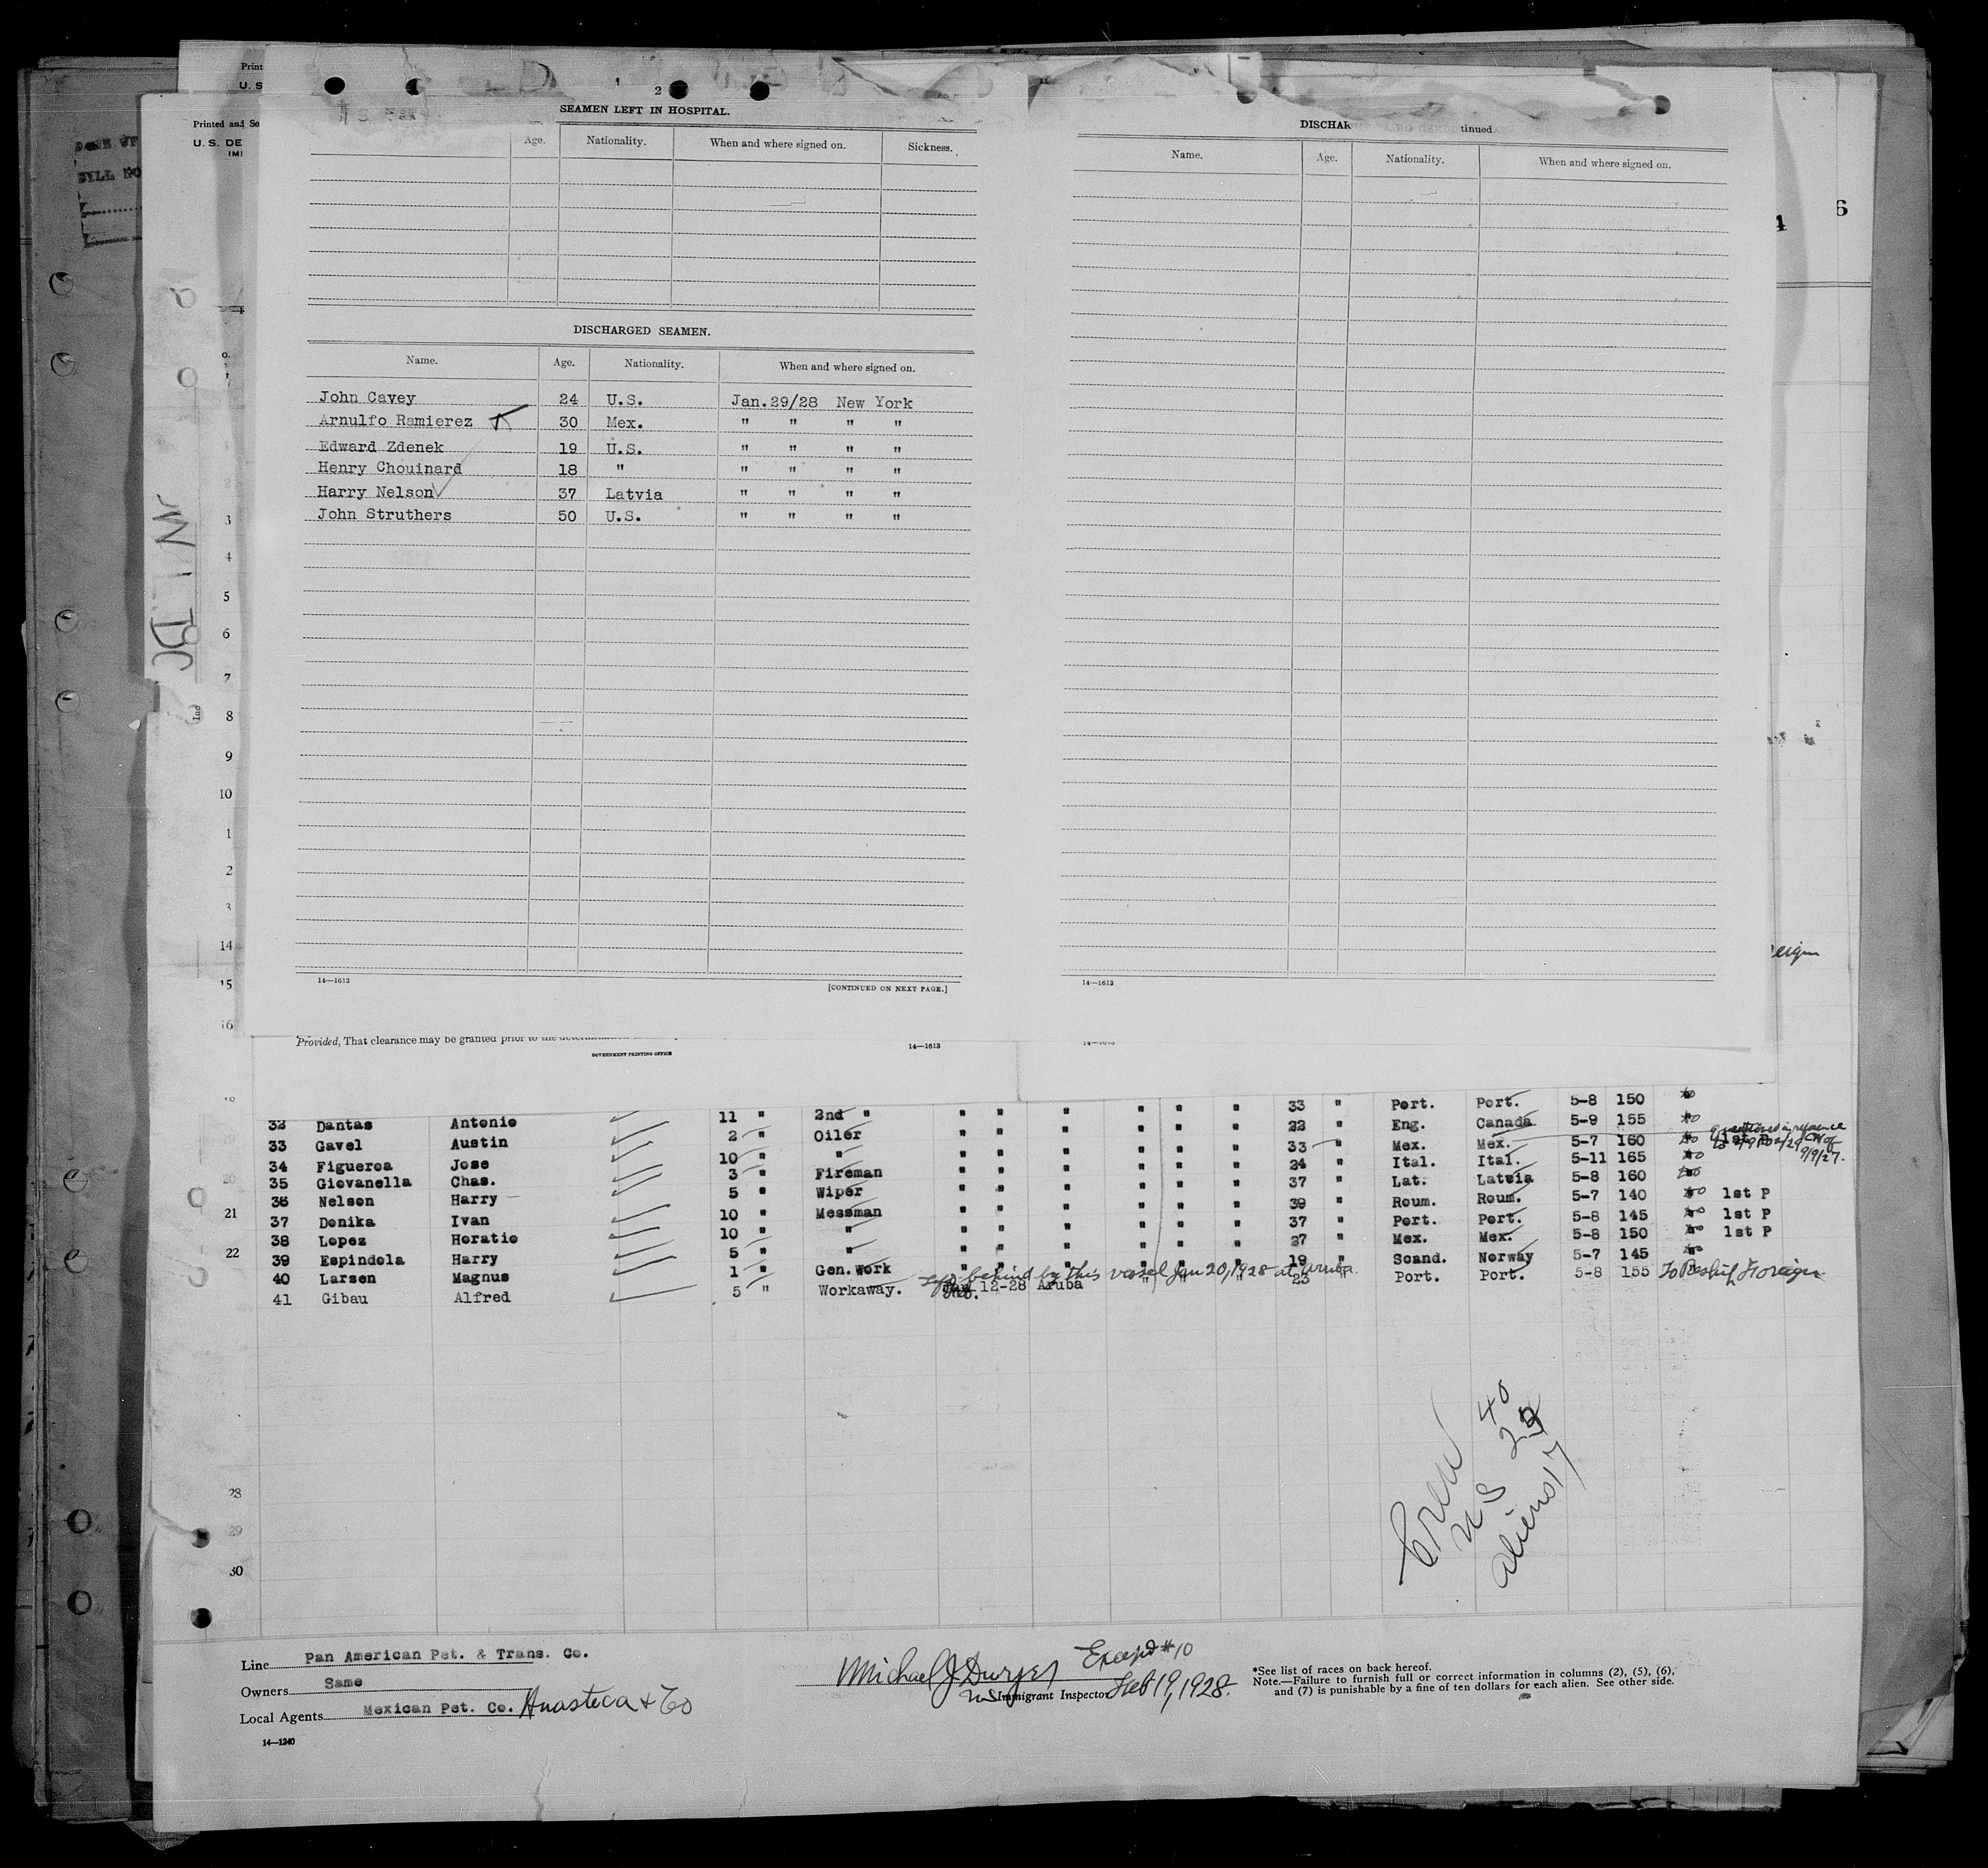 Print
U. S
Printed and So
U. S. DE
IMI
2
SEAMEN LEFT IN HOSPITAL.
Age. Nationality. When and where signed on. Sickness.
DISCHARGED SEAMEN.
Name. Age. Nationality. When and where signed on.
John Cavey 24 U.S. Jan.29/28 New York
Arnulfo Ramierez 30 Mex. " " " "
Edward Zdenek 19 U.S. " " " "
Henry Chouinard 18 " " " " "
Harry Nelson 37 Latvia " " " "
John Struthers 50 U.S. " " " "
14—1613 [CONTINUED ON NEXT PAGE.]
DISCHAR tinued
Name. Age. Nationality. When and where signed on.
14—1613
4 6
3
4
5
6
7
8
9
10
1
2
3
14
15
16
eign
Provided, That clearance may be granted prior to the
GOVERNMENT PRINTING OFFICE 14—1613
32 Dantas Antonio 11 " 2nd " " " " " " " 33 " Port. Port. 5-8 150 no
33 Gavel Austin 2 " Oiler " " " " " " 22 " Eng. Canada 5-9 155 no
34 Figueroa Jose 10 " " " " " " " " 33 " Mex. Mex. 5-7 160 no 1st P
9/9/27.
35 Giovanella Chas. 3 " Fireman " " " " " " 24 " Ital. Ital. 5-11 165 no
36 Nelson Harry 5 " Wiper " " " " " " 37 " Lat. Latvia 5-8 160 no
37 Donika Ivan 10 " Messman " " " " " " 39 " Roum. Roum. 5-7 140 no 1st P
38 Lopez Horatio 10 " " " " " " " " 37 " Port. Port. 5-8 145 no 1st P
39 Espindola Harry 5 " " " " " " " " 27 " Mex. Mex. 5-8 150 no 1st P
40 Larsen Magnus 1 " Gen.Work " " " " " " 19 " Scand. Norway 5-7 145 no
Left behind by this vessel Jan 20, 1928 at Aruba.
41 Gibau Alfred 5 " Workaway. Feb. 12-28 Aruba " " " 23 " Port. Port. 5-8 155 To Reship Foreign
21
22
28
29
30
Crew 40
US 23
aliens 17
Line Pan American Pet. & Trans. Co.
Owners Same
Local Agents Mexican Pet. Co. Huasteca & Co
14—1240
Michael J Dwyer Except #10
Immigrant Inspector Feb 19, 1928.
*See list of races on back hereof.
Note.—Failure to furnish full or correct information in columns (2), (5), (6),
and (7) is punishable by a fine of ten dollars for each alien. See other side.